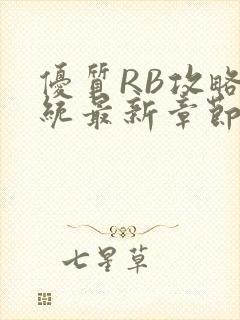 優質RB攻略
統最新章節
七星草